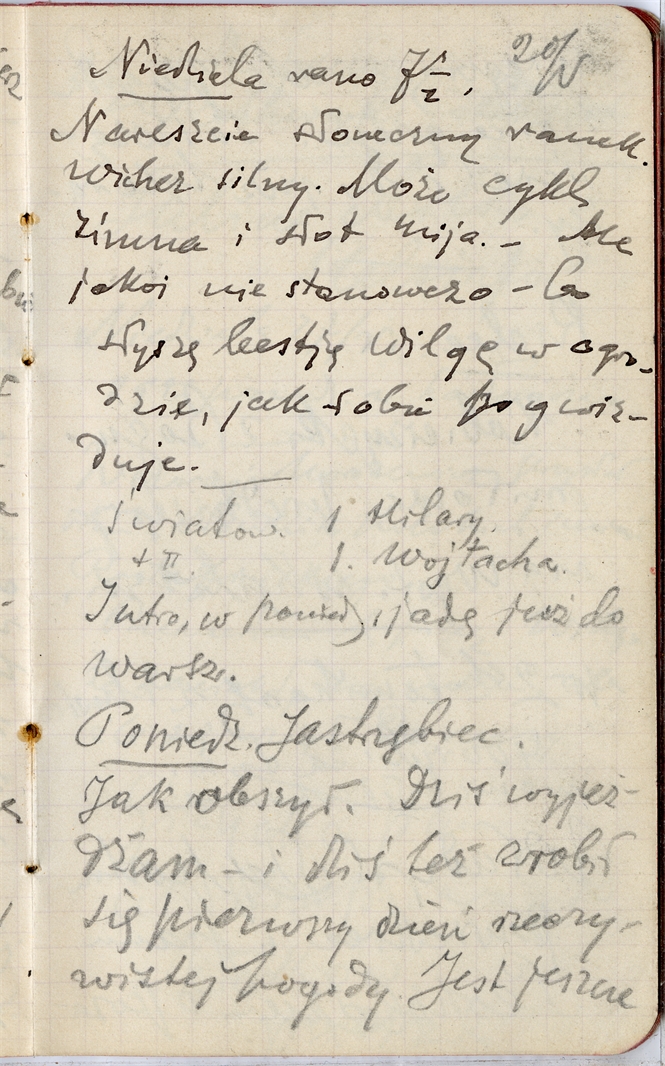 Niedziela rano 7 1/2, 20/V
Nareszcie słoneczny ranek.
Wicher silny. Może cykl
zimna i słot mija. - Ale
jakoś nie stanowczo - Co
słyszę bestję wilgę w ogro-
dzie, jak sobie pogwiz-
duje.
Światow. 1 Hilary.
+ II. 1. Wojtacha.
Jutro, w poniedz, jadę już do
Warsz.
Poniedz. Jastrzębiec.
Jak obszył. Dziś wyjeż-
dżam - i dziś też zrobił
się pierwszy dzień rzeczy-
wistej pogody. Jest jeszcze